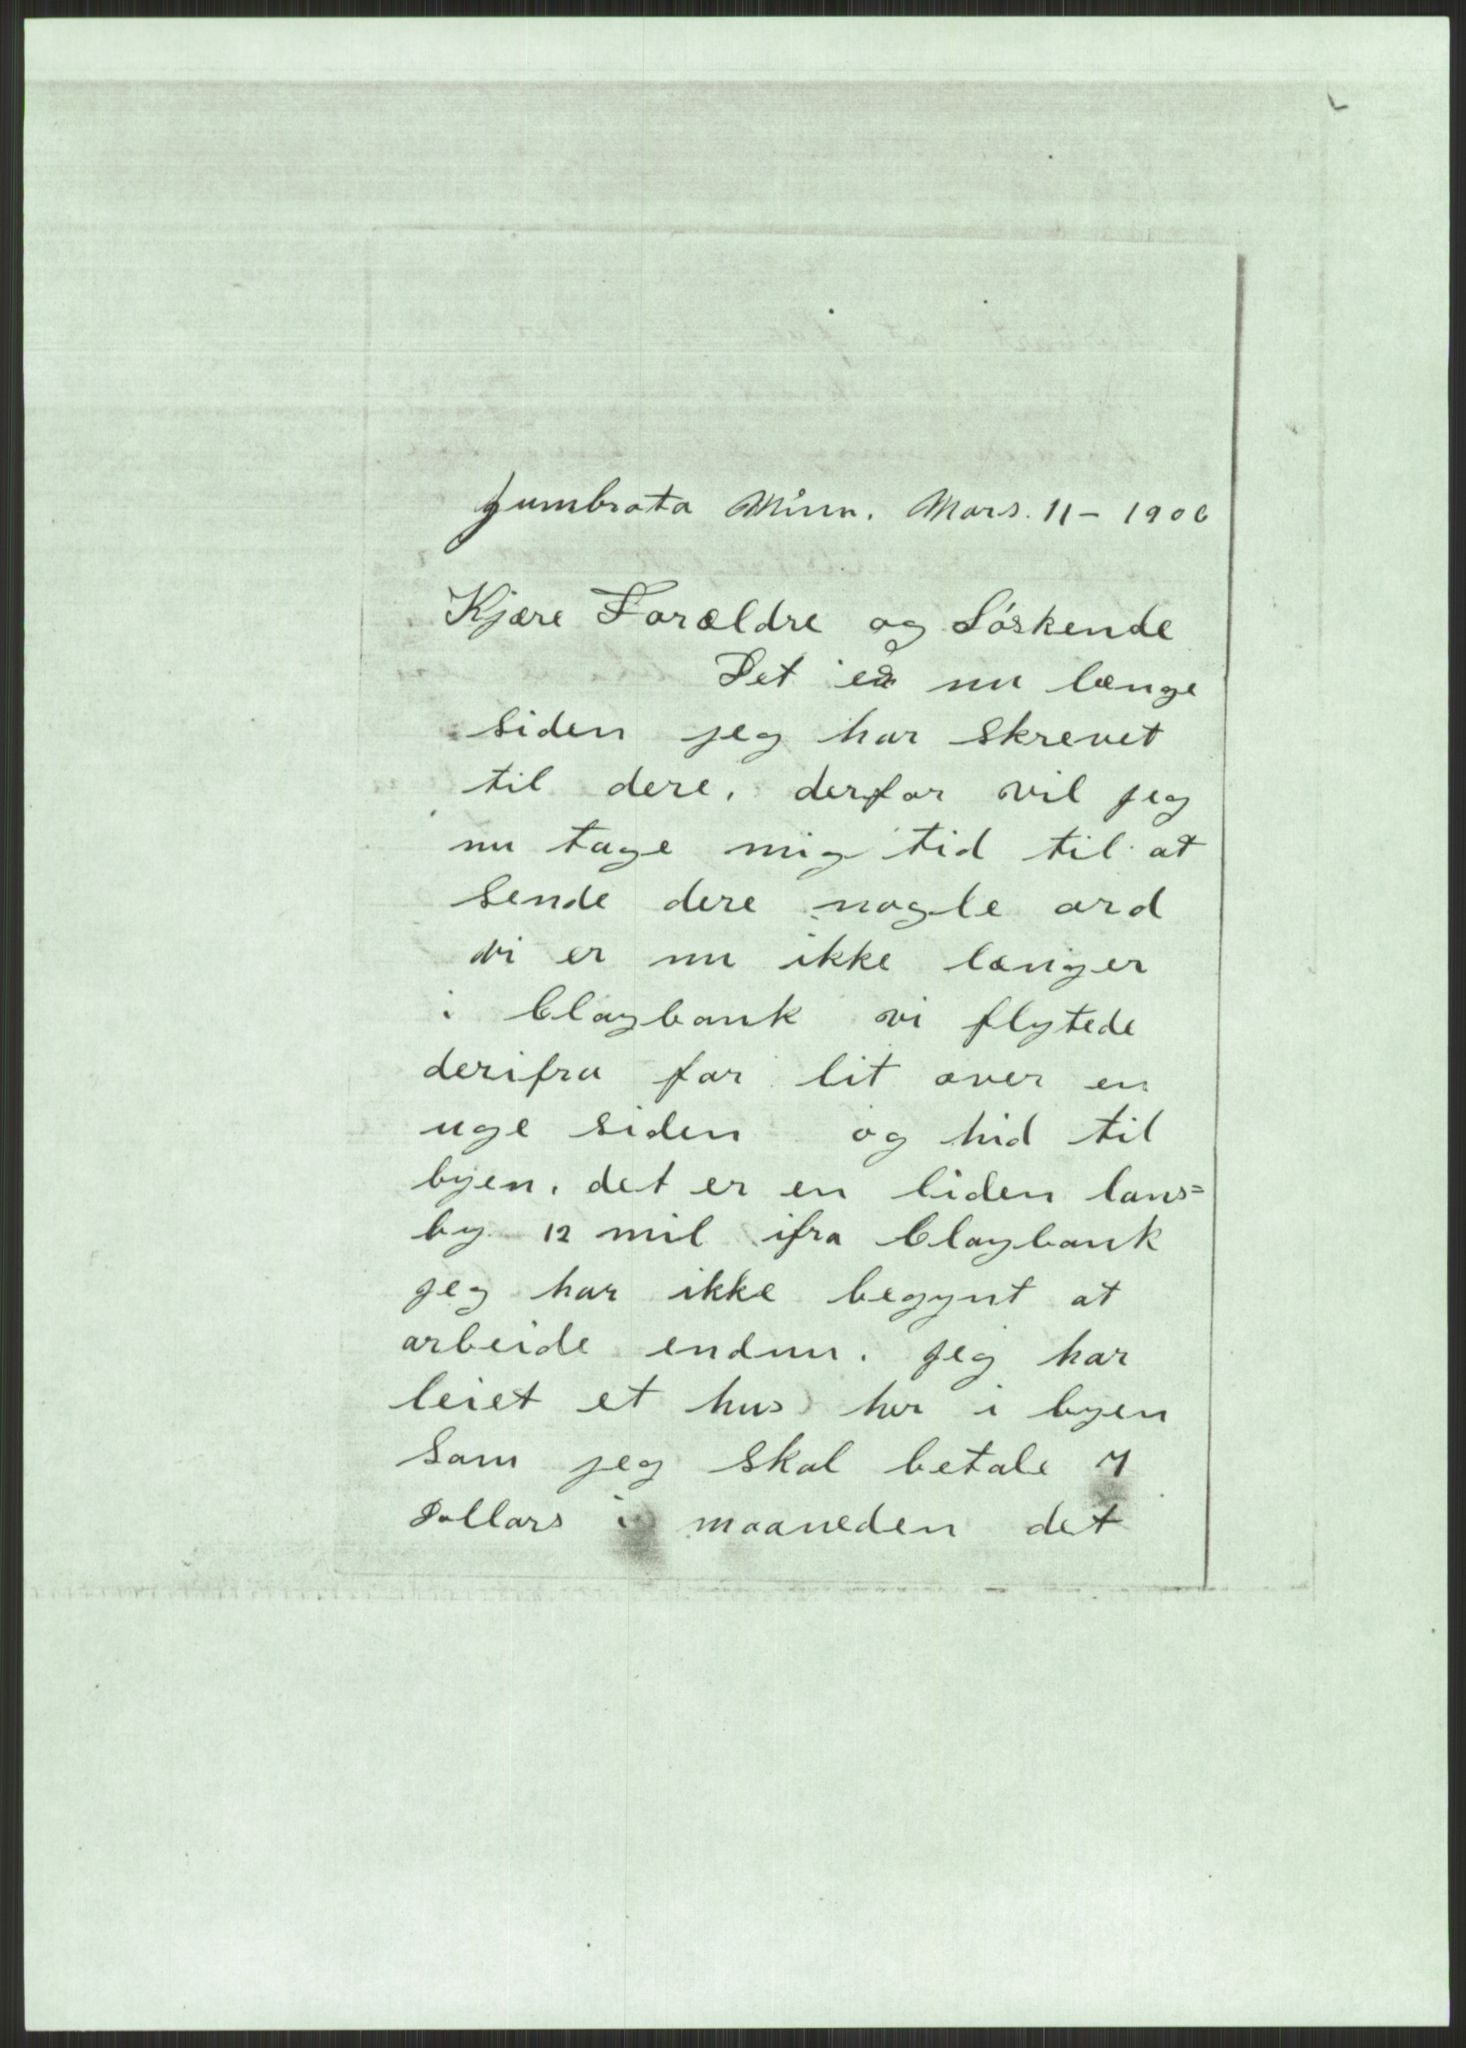 Zumbrota Minn. Mars. 11 – 1906
Kjære Forældre og Söskende
Det er nu længe
siden jeg har skrevet
til dere. derfor vil jeg
nu tage mig tid til at
sende dere nogle ord
vi er nu ikke længer
i Claybank vi flytede
derifra for lit over en
uge siden og hid til
byen. det er en liden lans=
by 12 mil ifra Claybank
jeg har ikke begynt at
arbeide endnu. jeg har
leiet et hus her i byen
som jeg skal betale 7
Dollars i maaneden det